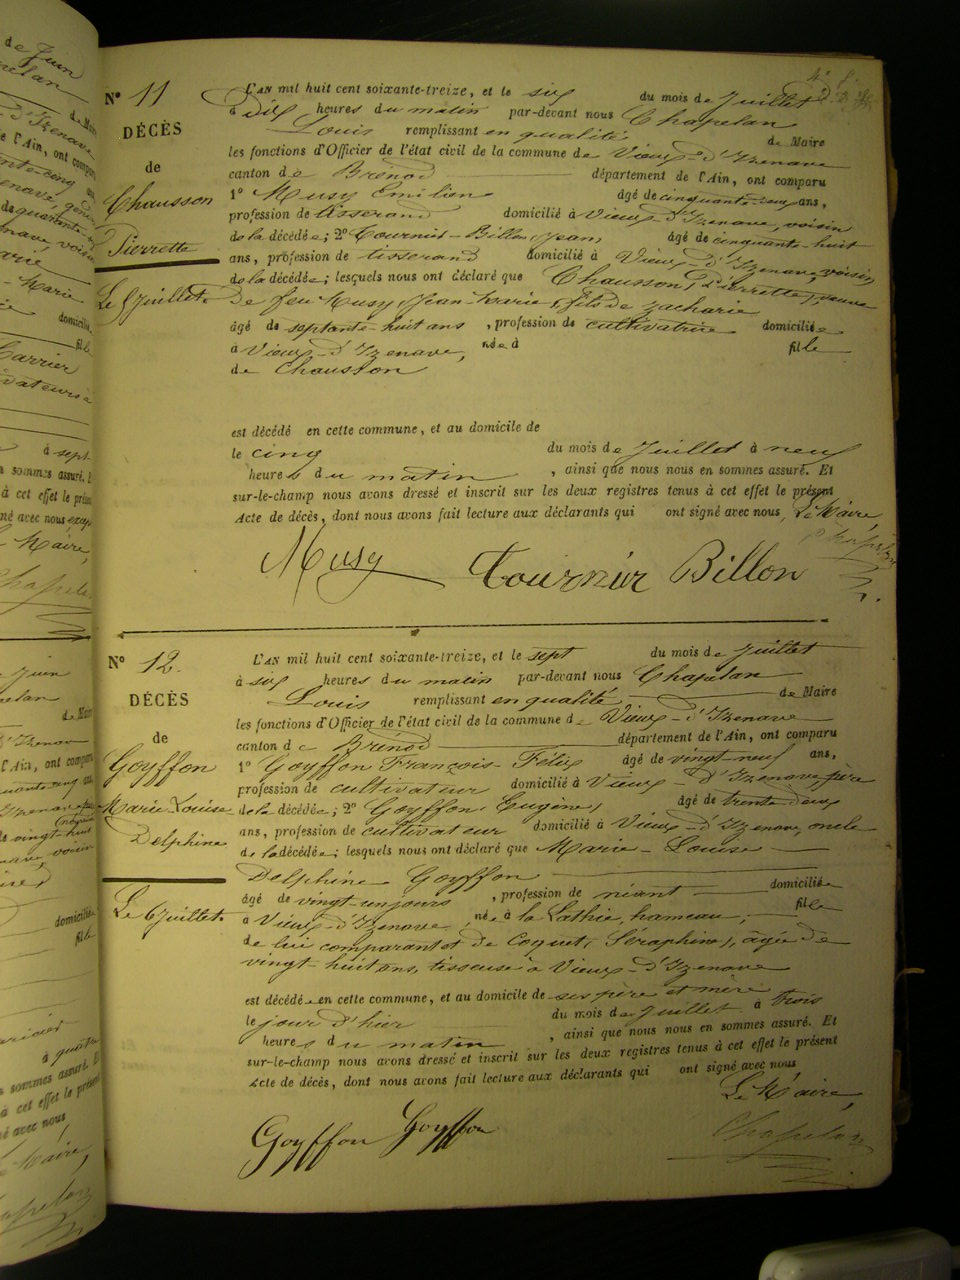 N° 11
DÉCÈS
de
Chausson
Pierrette
Le 5 Juillet
L'AN mil huit cent soixante-treize, et le six du mois de Juillet
à Dix heures du matin par-devant nous Chapelan
Louis remplissant en qualité de Maire
les fonctions d'Officier de l'état civil de la commune de Vieux-d'Izenave
canton de Brénod département de l'Ain, ont comparu
1° Musy Emilien âgé de cinquante- ans,
profession de tisserand domicilié à Vieux-d'Izenave, voisin
de la décédée; 2° Tournier-Billon, Jean, âgé de cinquante-huit
ans, profession de tisserand domicilié à Vieux-d'Izenave, voisin
de la décédée; lesquels nous ont déclaré que Chausson, Pierrette, veuve
de feu Musy, Jean-Marie, fils de Zacharie
âgé de septante-huit ans, profession de cultivatrice domiciliée
à Vieux-d'Izenave, née à fille
de Chausson
est décédé en cette commune, et au domicile de
le cinq du mois de Juillet à neuf
heures du matin, ainsi que nous nous en sommes assuré. Et
sur-le-champ nous avons dressé et inscrit sur les deux registres tenus à cet effet le présent
Acte de décès, dont nous avons fait lecture aux déclarants qui ont signé avec nous, Le Maire
Chapelan
Musy Tournier Billon
N° 12.
DÉCÈS
de
Goyffon
Marie-Louise
Delphine
Le 6 Juillet
L'AN mil huit cent soixante-treize, et le sept du mois de Juillet
à six heures du matin par-devant nous Chapelan
Louis remplissant en qualité de Maire
les fonctions d'Officier de l'état civil de la commune de Vieux-d'Izenave
canton de Brénod département de l'Ain, ont comparu
1° Goyffon François-Félix âgé de vingt-neuf ans,
profession de cultivateur domicilié à Vieux-d'Izenave, père
de la décédée; 2° Goyffon, Eugène, âgé de trente-deux
ans, profession de cultivateur domicilié à Vieux-d'Izenave, oncle
de la décédée; lesquels nous ont déclaré que Marie-Louise
Delphine Goyffon
âgé de vingt un jours, profession de néant domiciliée
à Vieux-d'Izenave, née à la Lathie, hameau, fille
de lui comparant et de Coquet, Séraphine, âgée de
vingt-huit ans, tisseuse à Vieux-d'Izenave
est décédée en cette commune, et au domicile de ses père et mère
le jour d'hier du mois de Juillet à trois
heures du matin, ainsi que nous nous en sommes assuré. Et
sur-le-champ nous avons dressé et inscrit sur les deux registres tenus à cet effet le présent
Acte de décès, dont nous avons fait lecture aux déclarants qui ont signé avec nous
Le Maire,
Goyffon Goyffon Chapelan